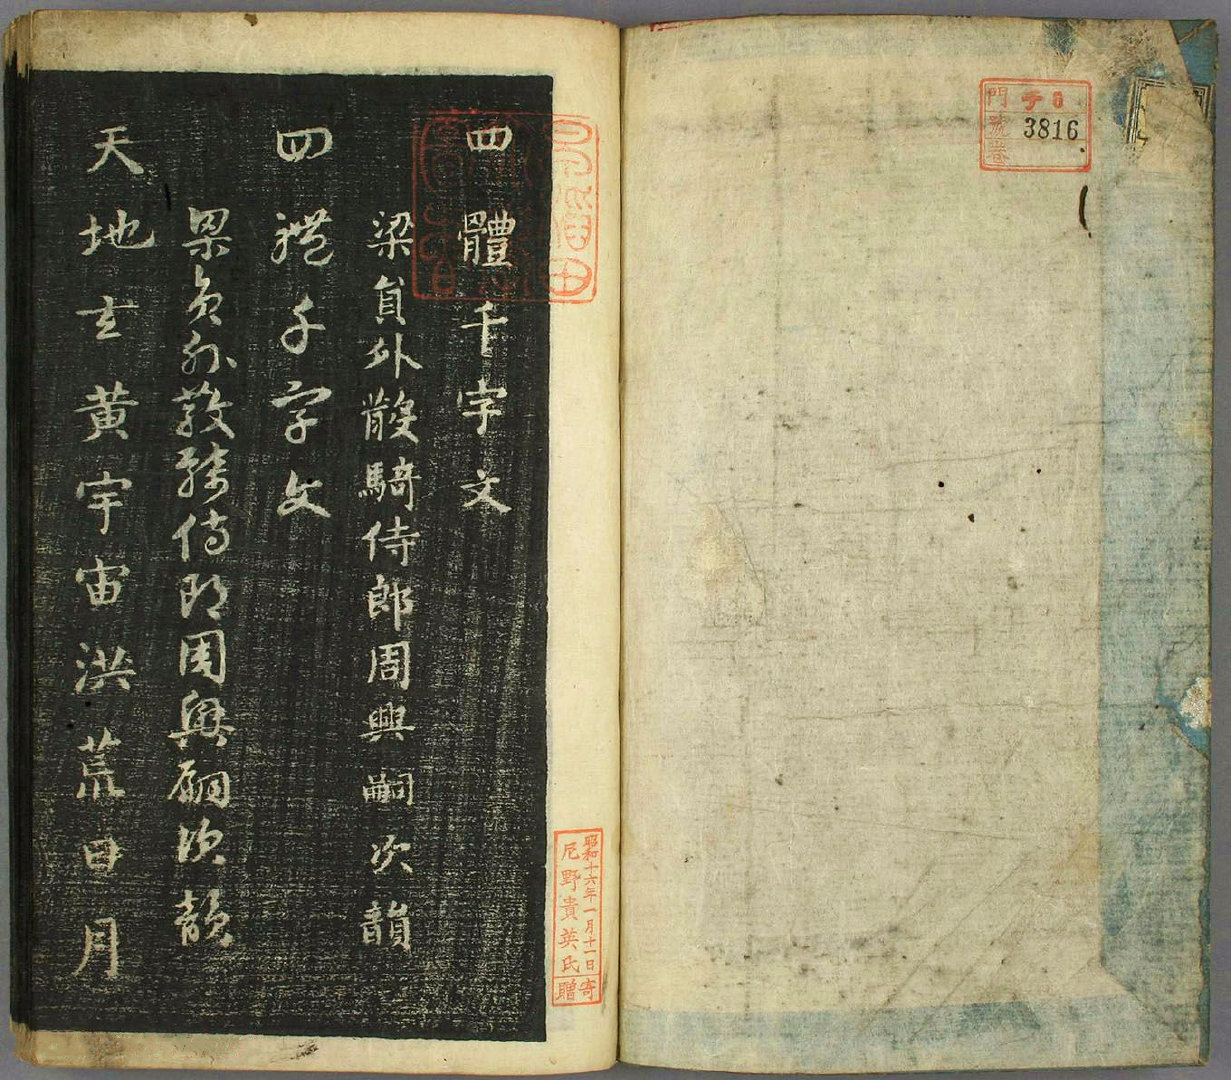 門 チ6
號 3816
卷
四體千字文
梁員外散騎侍郎周興嗣次韻
四體千字文
梁員外散騎侍郎周興嗣次韻
天地玄黄宇宙洪荒日月
昭和十六年一月十一日
尼野貴英氏
寄贈